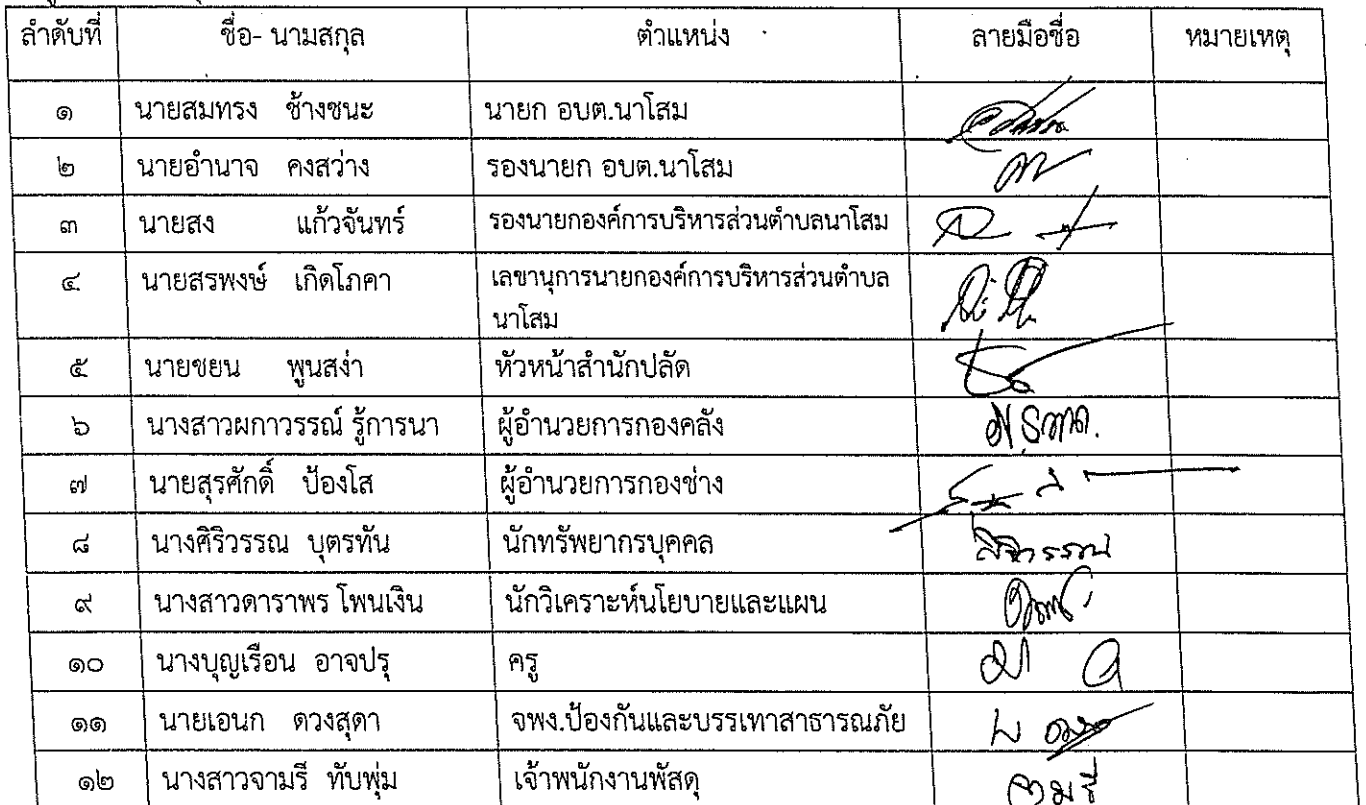 ลำดับที่ ชื่อ- นามสกุล ตำแหน่ง ลายมือชื่อ หมายเหตุ
๑ นายสมทรง ช้างชนะ นายก อบต.นาโสม
๒ นายอำนาจ คงสว่าง รองนายก อบต.นาโสม
๓ นายสง แก้วจันทร์ รองนายกองค์การบริหารส่วนตำบลนาโสม
๔ นายสรพงษ์ เกิดโภคา เลขานุการนายกองค์การบริหารส่วนตำบล
นาโสม
๕ นายชยน พูนสง่า หัวหน้าสำนักปลัด
๖ นางสาวผกาวรรณ์ รู้การนา ผู้อำนวยการกองคลัง
๗ นายสุรศักดิ์ ป้องโส ผู้อำนวยการกองช่าง
๘ นางศิริวรรณ บุตรทัน นักทรัพยากรบุคคล
๙ นางสาวดาราพร โพนเงิน นักวิเคราะห์นโยบายและแผน
๑๐ นางบุญเรือน อาจปรุ ครู
๑๑ นายเอนก ดวงสุดา จพง.ป้องกันและบรรเทาสาธารณภัย
๑๒ นางสาวจามรี ทับพุ่ม เจ้าพนักงานพัสดุ จามรี